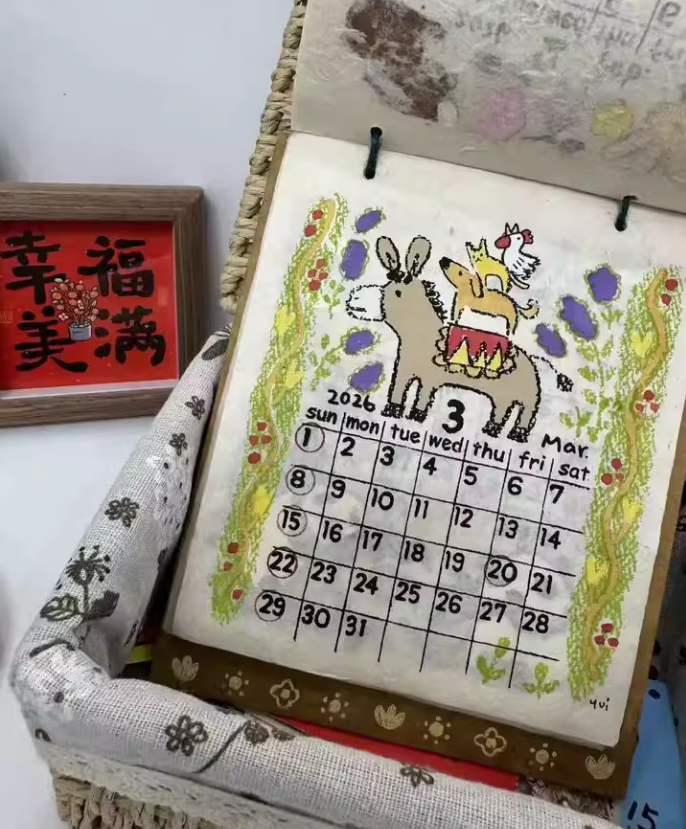 幸福
美满
2026 3 Mar.
sun mon tue wed thu fri sat
1 2 3 4 5 6 7
8 9 10 11 12 13 14
15 16 17 18 19 20 21
22 23 24 25 26 27 28
29 30 31
yui
15